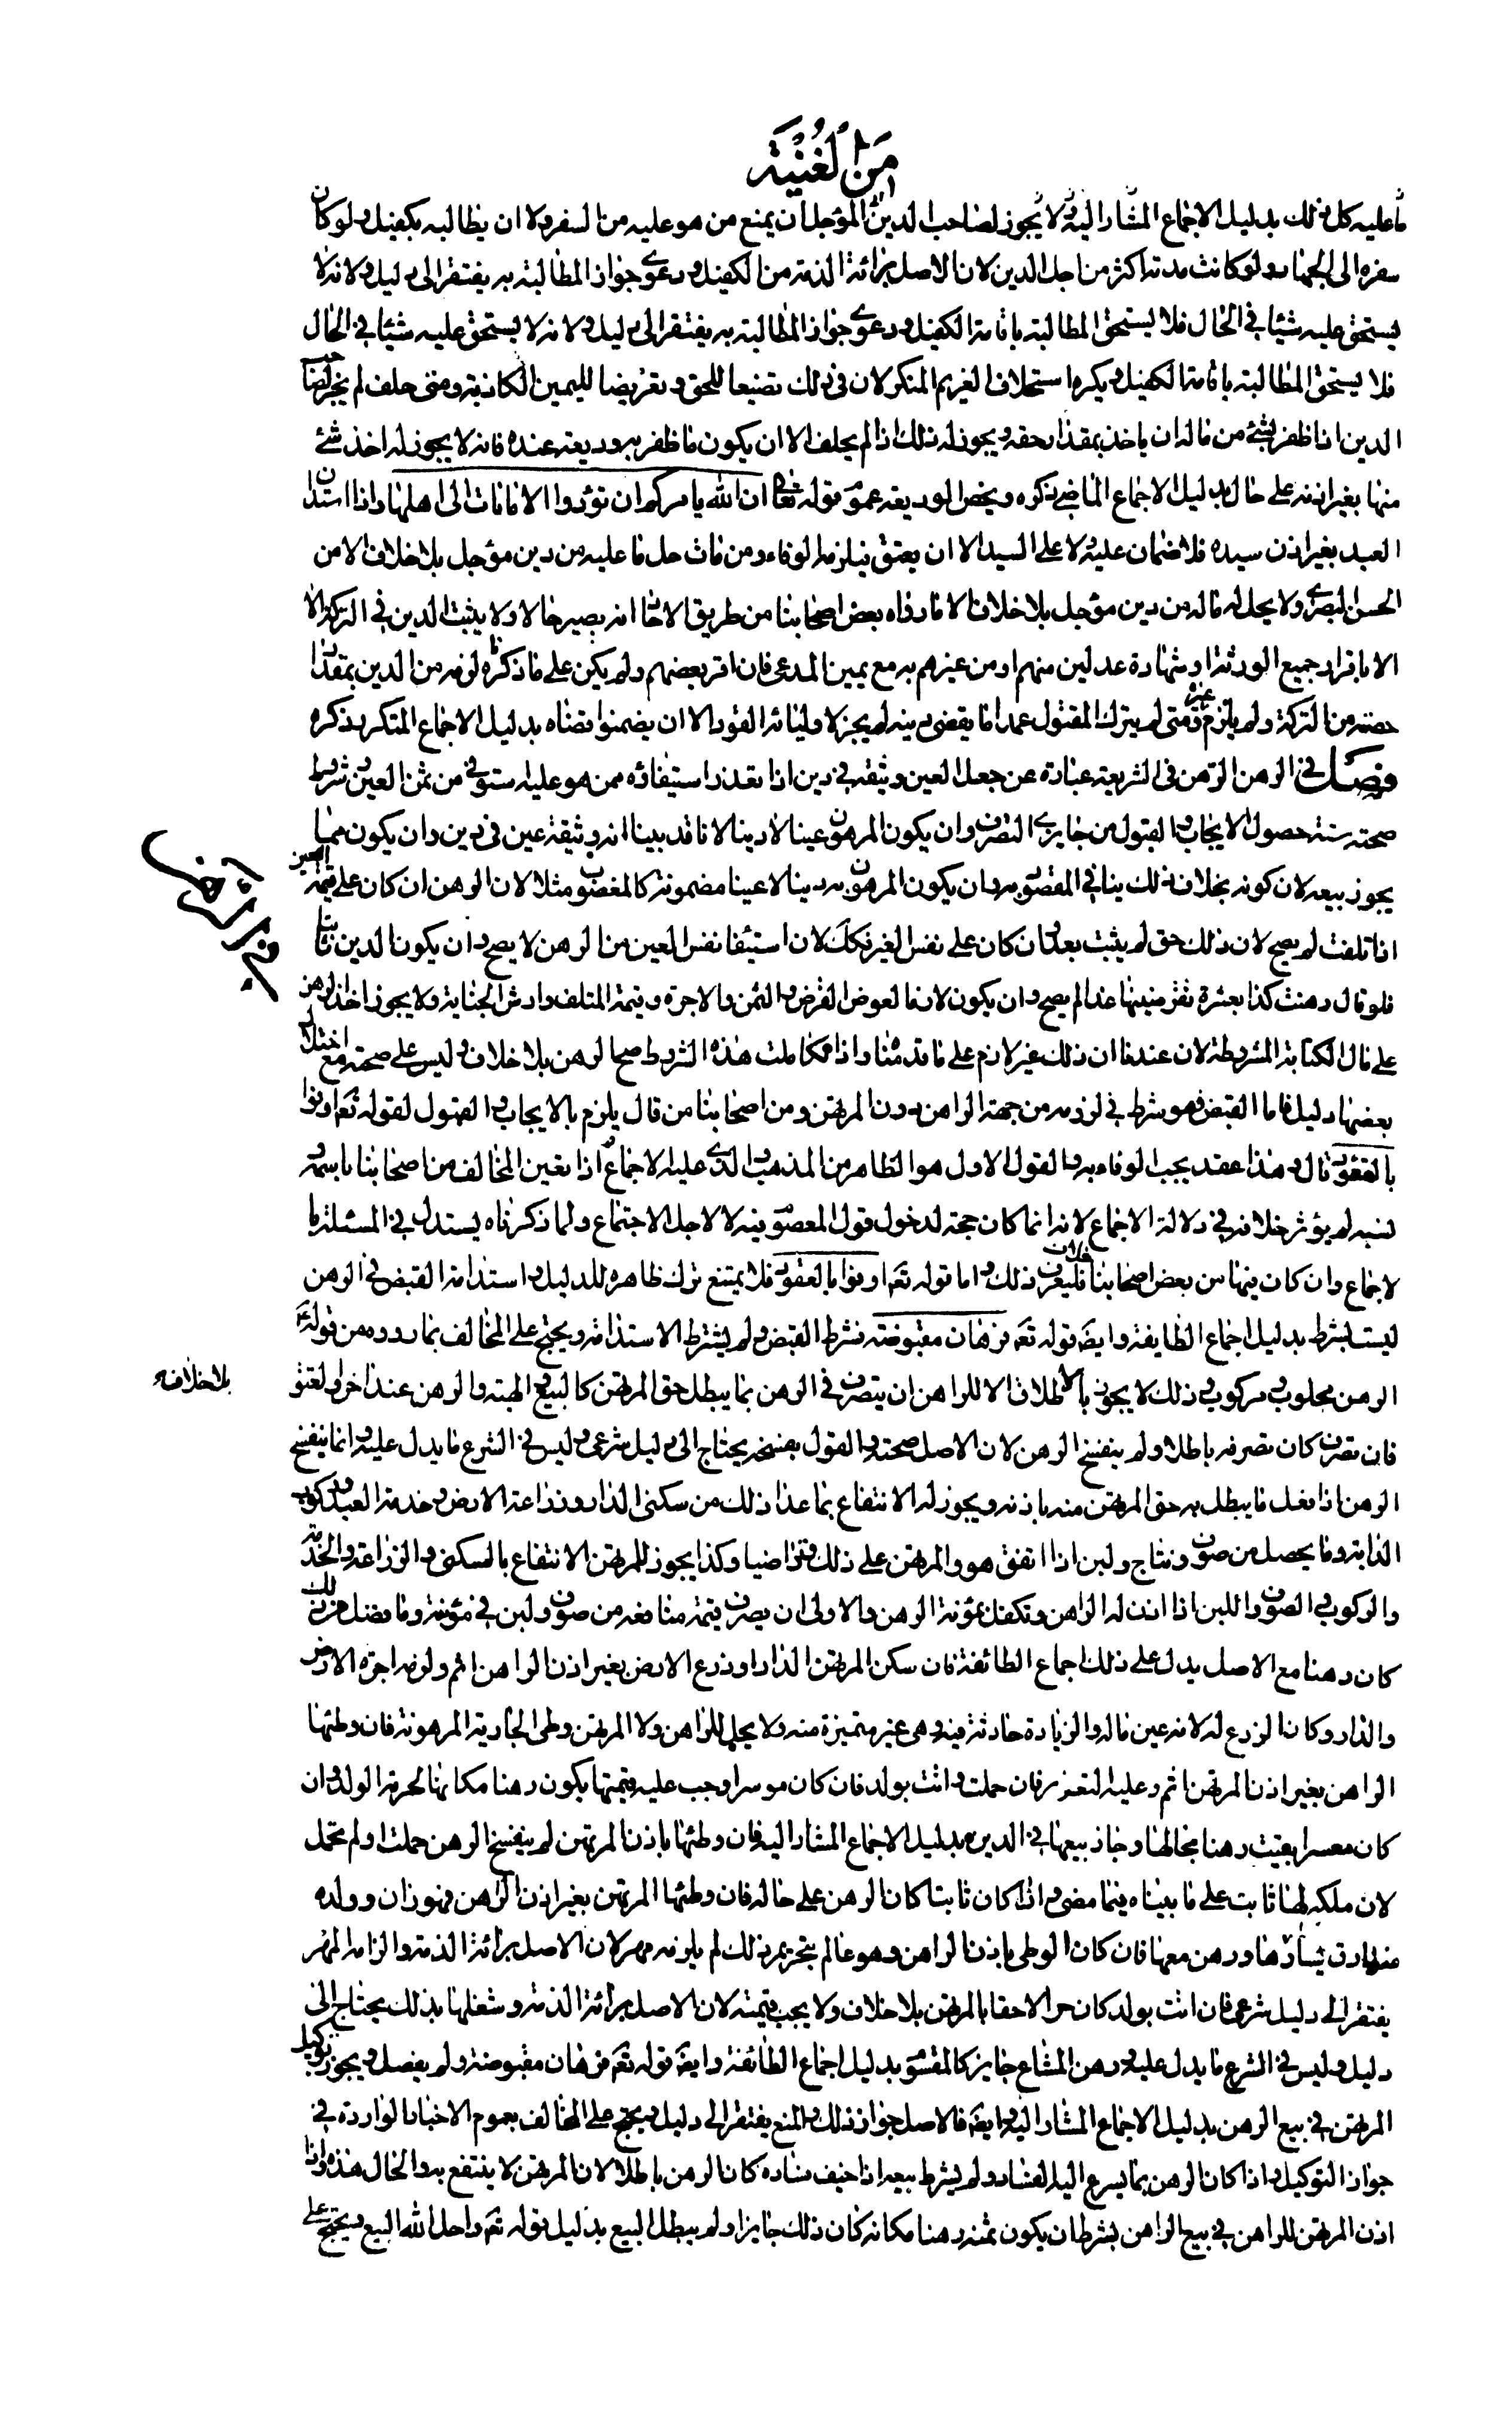 من الغنية
ما عليه كل ذلك بدليل الاجماع المشار اليه ولا يجوز لصاحب الدين المؤجل ان يمنع من هو عليه من السفر ولا ان يطالبه بكفيل ولو كان
سفره الى الجهاد ولو كانت مدته اكثر من اجل الدين لان الاصل برائة الذمة من الكفيل ودعوى جواز المطالبة به يفتقر الى دليل ولانه لا
يستحق عليه شيئا في الحال فلا يستحق المطالبة باقامة الكفيل ودعوى جواز المطالبة به يفتقر الى دليل ولانه لا يستحق عليه شيئا في الحال
فلا يستحق المطالبة باقامة الكفيل ويكره استحلاف الغريم المنكر لان في ذلك تضيعا للحق وتعريضا لليمين الكاذبة ومتى حلف لم يجز لصاحب
الدين اذا ظفر بشئ من ماله ان ياخذ بمقدار حقه ويجوز له ذلك اذا لم يحلف الا ان يكون ما ظفر به وديعة عنده فانه لا يجوز له اخذ شئ
منها بغير اذنه على حال بدليل الاجماع الماضي ذكره ويخص الوديعة عموم قوله تعالى ان الله يامركم ان تؤدوا الامانات الى اهلها واذا استدان
العبد بغير اذن سيده فلا ضمان عليه ولا على السيد الا ان يعتق فيلزمه الوفاء ومن مات حل ما عليه من دين مؤجل بلا خلاف الا من
الحسن البصري ولا يحل له ماله من دين مؤجل بلا خلاف الا ما رواه بعض اصحابنا من طريق الاحاد انه يصير حالا ولا يثبت الدين في التركة الا
الا باقرار جميع الورثة او شهادة عدلين منهم او من غيرهم به مع يمين المدعى فان اقر بعضهم ولم يكن على ما ذكرناه لزمه من الدين بمقدار
حصته من التركة ولم يلزم غيره ومتى لم يترك المقتول عمدا ما يقضى دينه لم يجز لاوليائه القود الا ان يضمنوا قضاه بدليل الاجماع المتكرر ذكره
فصل في الرهن الرهن في الشريعة عبارة عن جعل العين وثيقة في دين اذا تعذر استيفائه ممن هو عليه استوفى من ثمن العين وشروط
صحته ستة حصول الايجاب والقبول من جايزى التصرف وان يكون المرهون عينا لا دينا لانا قد بينا انه وثيقة عين في دين وان يكون مما
يجوز بيعه لان كونه بخلاف ذلك ينافي المقصود به وان يكون المرهون به دينا لا عينا مضمونة كالمغصوب مثلا لان الرهن ان كان على قيمة العين
اذا تلفت لم يصح لان ذلك حق لم يثبت بعد وان كان على نفس العين فكك لان استيفا نفس العين من الرهن لا يصح وان يكون الدين ثابتا
فلو قال رهنت كذا بعشرة تقرضنيها غدا لم يصح وان يكون لازما لعوض القرض والثمن والاجرة وقيمة المتلف وارش الجناية ولا يجوز اخذ الرهن
على مال الكتابة المشروطة لان عندنا ان ذلك غير لازم على ما قدمناه واذا تكاملت هذه الشروط صح الرهن بلا خلاف وليس على صحته مع اختلال
بعضها دليل فاما القبض فهو شرط في لزومه من جهة الراهن دون المرتهن ومن اصحابنا من قال يلزم بالايجاب والقبول لقوله تعه اوفوا
بالعقود قال وهذا عقد يجب الوفاء به والقول الاول هو الظاهر من المذهب والذى عليه الاجماع اذا تعين المخالف من اصحابنا باسمه و
نسبه لم يؤثر خلافه في دلالة الاجماع لانه انما كان حجة لدخول قول المعصوم فيه لا لاجل الاجتماع ولما ذكرناه يستدل في المسئلة با
لاجماع وان كان فيها من بعض اصحابنا خلاف فليعرف ذلك واما قوله تعه اوفوا بالعقود فلا يمتنع ترك ظاهره للدليل واستدامة القبض في الرهن
ليست بشرط بدليل اجماع الطايفة وايضه قوله تعه فرهان مقبوضة فشرط القبض ولم يشترط الاستدامة ويحتج على المخالف بما رووه من قوله ع
الرهن محلوب ومركوب وذلك لا يجوز بالاطلاق الا للراهن ان يتصرف في الرهن بما يبطل حق المرتهن كالبيع والهبة والرهن عند اخر والعتق بلا خلاف
فان تصرف كان تصرفه باطلا ولم ينفسخ الرهن لان الاصل صحته والقول بفسخه يحتاج الى دليل شرعى وليس في الشرع ما يدل عليه وانما ينفسخ
الرهن اذا فعل ما يبطل به حق المرتهن منه باذنه ويجوز له الانتفاع بما عدا ذلك من سكنى الدار وزراعة الارض وخدمة العبد وركوب
الدابة وما يحصل من صوف ونتاج ولبن اذا اتفق هو والمرتهن على ذلك وتراضيا وكذا يجوز للمرتهن الانتفاع بالسكنى والزراعة والخدمة
والركوب والصوف واللبن اذا اذن له الراهن وتكفل بمؤنة الرهن والاولى ان يصرف قيمة منافعه من صوف ولبن في مؤنته وما فضل من ذلك
كان رهنا مع الاصل يدل على ذلك اجماع الطائفة فان سكن المرتهن الدار او زرع الارض بغير اذن الراهن اثم ولزمه اجرة الارض
والدار وكان الزرع له لانه عين ماله والزيادة حادثة فيه وهى غير متميزة منه ولا يحل للراهن ولا المرتهن وطى الجارية المرهونة فان وطئها
الراهن بغير اذن المرتهن اثم وعليه التعزير فان حملت واتت بولد فان كان موسرا وجب عليه قيمتها يكون رهنا مكانها لحرمة الولد وان
كان معسرا بقيت رهنا بحالها وجاز بيعها في الدين بدليل الاجماع المشار اليه فان وطئها باذن المرتهن لم ينفسخ الرهن حملت او لم تحمل
لان ملكه لها ثابت على ما بيناه فيما مضى واذا كان ثابتا كان الرهن على حاله فان وطئها المرتهن بغير اذن الراهن فهو زان وولده
منها رق لسيدها ورهن معها فان كان الوطى باذن الراهن وهو عالم بتحريم ذلك لم يلزمه مهر لان الاصل برائة الذمة والزامه المهر
يفتقر الى دليل شرعى فان اتت بولد كان حرا لاحقا بالمرتهن بلا خلاف ولا يجب قيمته لان الاصل برائة الذمة وشغلها بذلك يحتاج الى
دليل وليس في الشرع ما يدل عليه ورهن المشاع جايز كالمقسوم بدليل اجماع الطائفة وايضه قوله تعه فرهان مقبوضة ولم يفصل ويجوز توكيل
المرتهن في بيع الرهن بدليل الاجماع المشار اليه وايضه فالاصل جواز ذلك والمنع يفتقر الى دليل ويحتج على المخالف بعموم الاخبار الواردة في
جواز التوكيل واذا كان الرهن مما يسرع اليه الفساد ولم يشرط بيعه اذا خيف فساده كان الرهن باطلا لان المرتهن لا ينتفع به والحال هذه واذا
اذن المرتهن للراهن في بيع الراهن بشرط ان يكون ثمنه رهنا مكانه كان ذلك جايزا ولم يبطل البيع بدليل قوله تعه واحل الله البيع ويحتج على
في الرهن